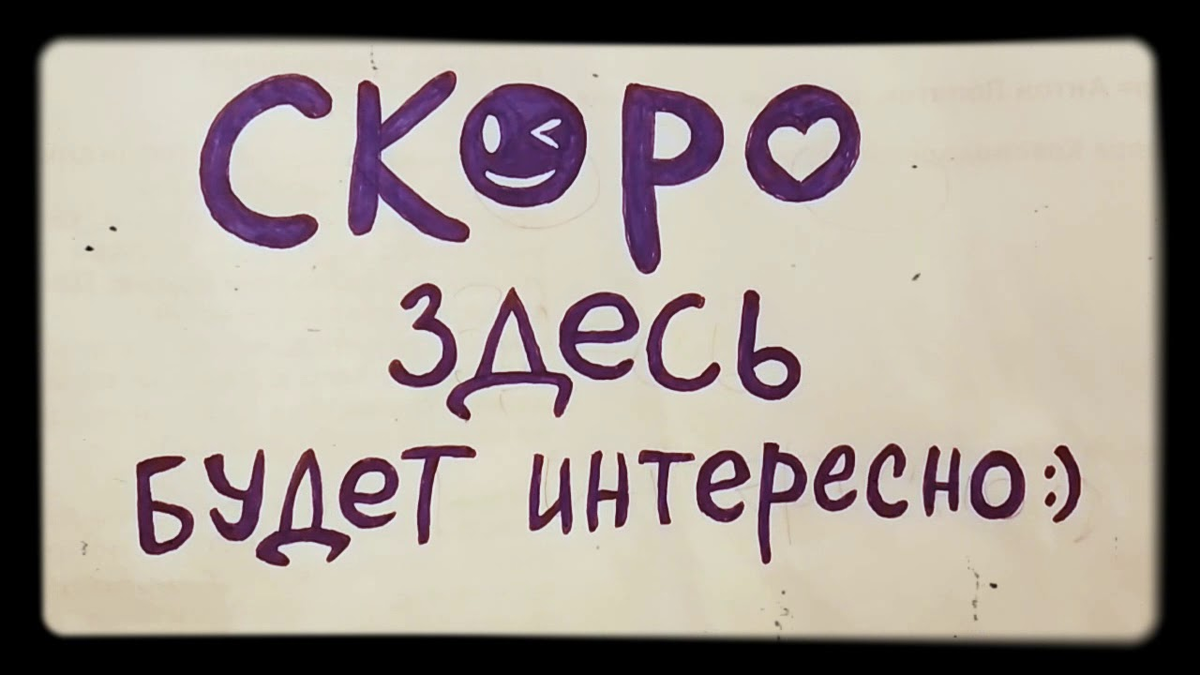 СКОРО
здесь
будет интересно:)